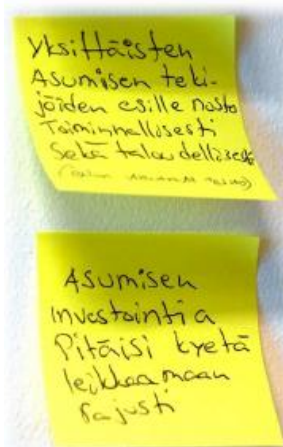 Yksittäisten
Asumisen teki-
jöiden esille nosto
Toiminnallisesti
Sekä taloudellisesti
Asumisen
investointia
Pitäisi kyetä
leikkaamaan
Rajusti